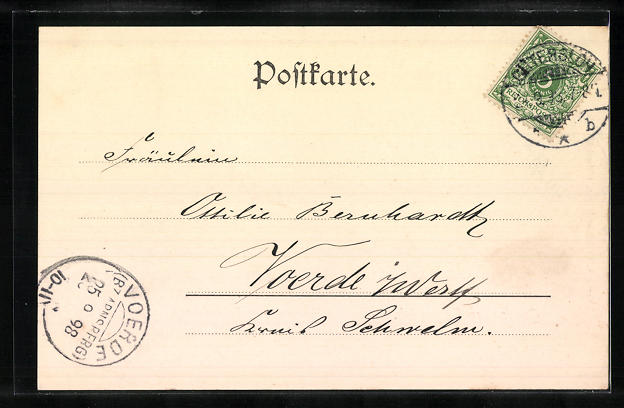 Postkarte.
GÜTERSLOH
b
Fräulein
Ottilie Bernhardt
Voerde i/Westf
Kreis Schwelm.
VOERDE
(BZ ARNSBERG)
25 9 98
10-11V